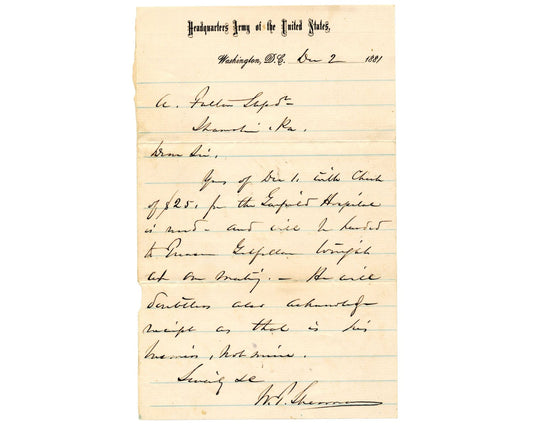 Headquarters Army of the United States,
Washington, D.C. Dec 2 1881
A. Fulton
Shamokin, Pa.
Dear Sir,
Yrs of Dec 1. with Check
of $25. for the Garfield Hospital
is recd - and will be handed
to Gilfillan tonight
at our meeting. - He will
doubtless also acknowledge
receipt as that is his
business, not mine.
Sincerely &c
W. T. Sherman